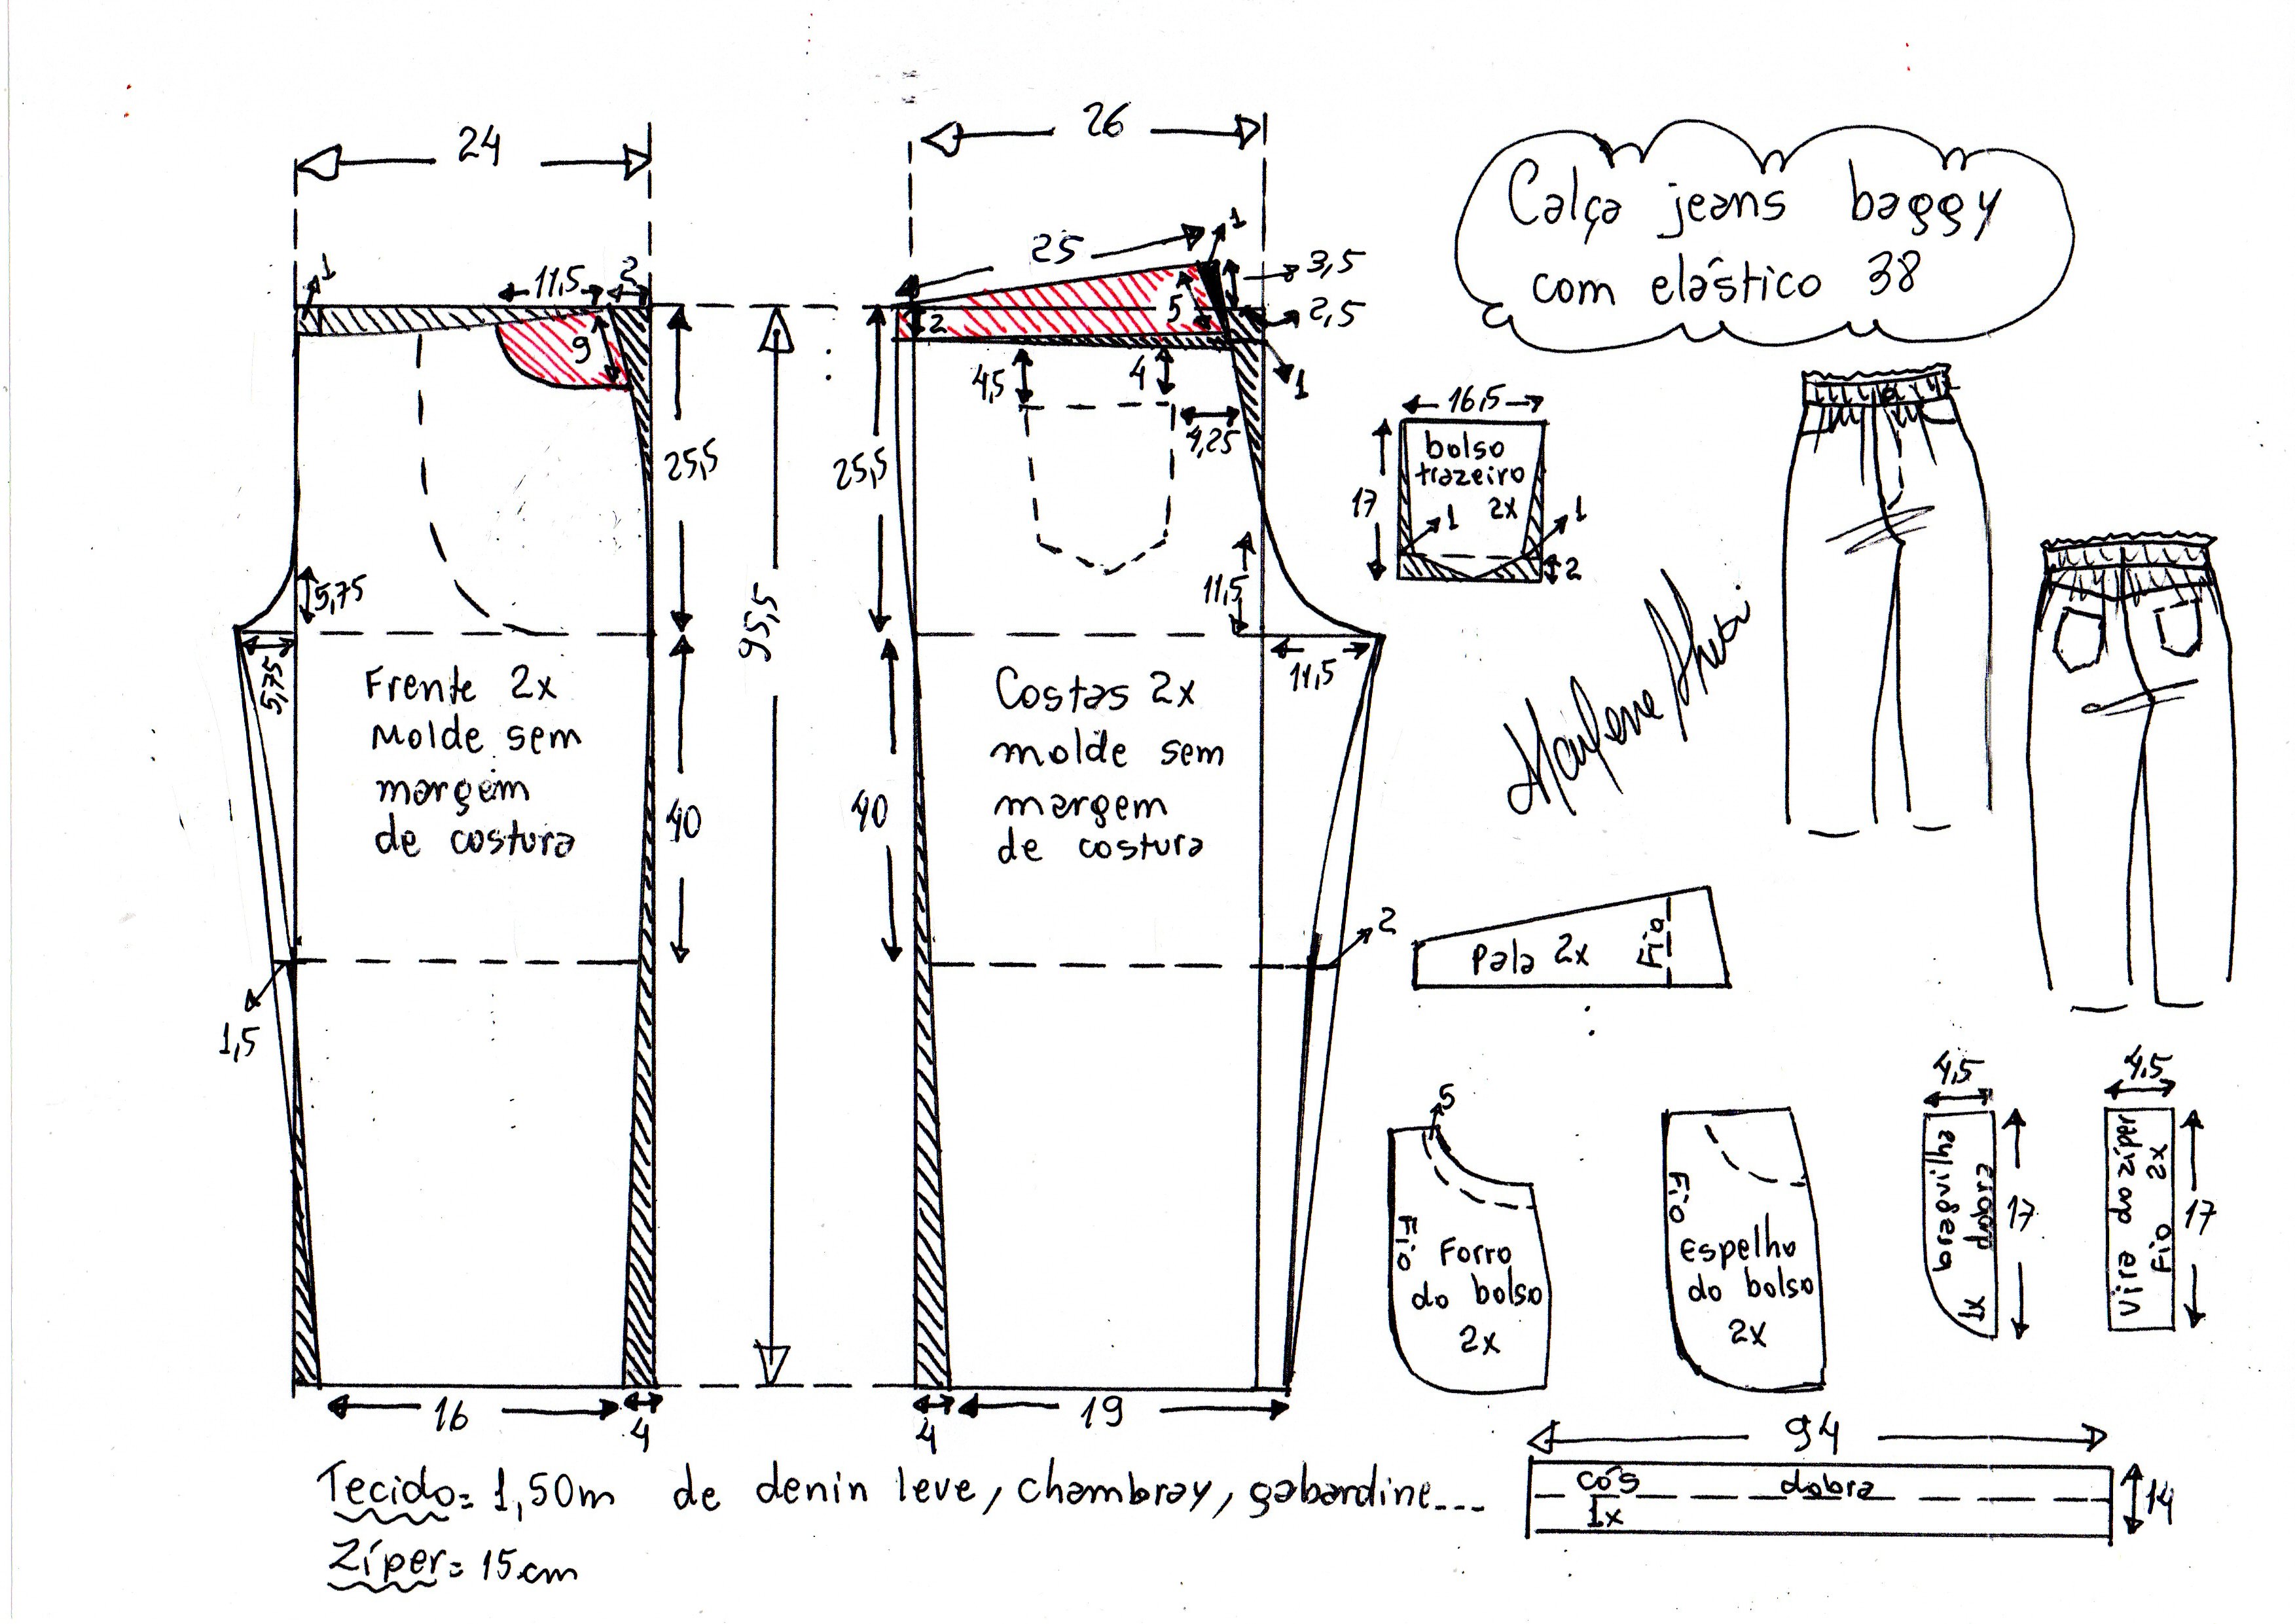 24
26
Calça jeans baggy
com elástico 38
1
11,5
3
25
1
3,5
2,5
9
5
2
1
4,5
4
4,25
25,5
25,5
16,5
bolso
trazeiro
2x
17
1
1
2
5,75
5,75
95,5
11,5
11,5
Frente 2x
Molde sem
margem
de costura
40
40
Costas 2x
molde sem
margem
de costura
2
1,5
Pala 2x
Fio
16
4
4
19
5
Fio
Forro
do bolso
2x
Fio
Espelho
do bolso
2x
4,5
braguilha
dobra
1x
17
4,5
Vira do zíper
2x
Fio
17
94
cós
dobra
1x
14
Tecido= 1,50m de denin leve, chambray, gabardine...
Zíper= 15cm